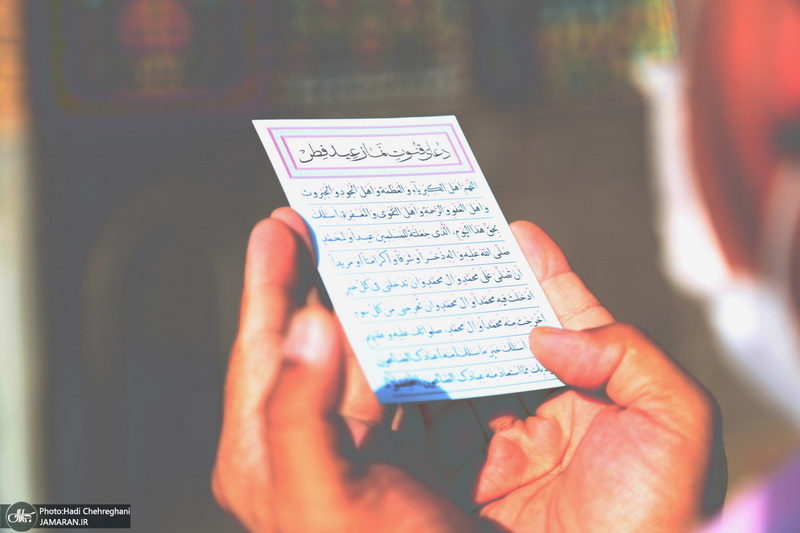 دعای قنوت نماز عید فطر
اللهم اهل الکبریاء و العظمة و اهل الجود و الجبروت
و اهل العفو و الرحمة و اهل التقوی و المغفرة، اسئلک
بحق هذا الیوم، الذی جعلته للمسلمین عیداً و لمحمد
صلی الله علیه و اله ذخراً و شرفاً و کرامتاً و مزیداً
ان تصلی علی محمد و ال محمد و ان تدخلنی فی کل خیر
ادخلت فیه محمداً و ال محمد و ان تخرجنی من کل سوء
اخرجت منه محمداً و ال محمد، صلواتک علیه و علیهم
اسئلک خیر ما سئلک منه عبادک الصالحون
بک مما استعاذ منه عبادک
Photo:Hadi Chehreghani
JAMARAN.IR